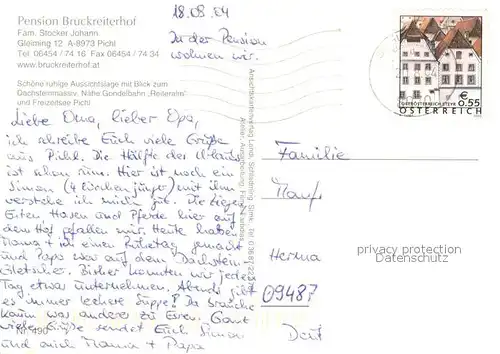 Pension Bruckreiterhof
Fam. Stocker Johann
Gleiming 12 A-8973 Pichl
Tel. 06454 / 74 16 Fax 06454 / 74 34
www.bruckreiterhof.at
Schöne ruhige Aussichtslage mit Blick zum
Dachsteinmassiv. Nähe Gondelbahn „Reiteralm"
und Freizeitsee Pichl
18.08.04
In der Pension
wohnen wir.
€
0.55
ÖSTERREICH
Liebe Oma, lieber Opa,
ich schreibe Euch viele Grüße
aus Pichl. Die Hälfte des Urlaubs
ist schon rum. Hier ist noch ein
Simon (4 Wochen jünger) mit ihm
verstehe ich mich gut. Die Ziegen,
Enten, Hasen und Pferde hier auf
dem Hof gefallen mir. Heute haben
Mama + ich einen Ruhetag gemacht
und Papa war auf dem Dachstein-
Gletscher. Bisher konnten wir jeden
Tag etwas unternehmen. Abends gibt
es immer leckere Suppe! Da brauche
kaum was anderes zu Essen. Ganz
viele Grüße sendet Euch Simon
und auch Mama + Papa
Nr. 490
Familie
Herma
09487
privacy protection
Datenschutz